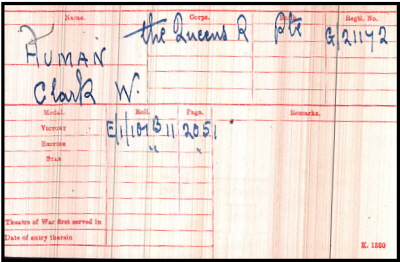 Name. Corps. Rank. Regtl. No.
HUMAN the Queens R Pte G/21142
Clark W.
Medal. Roll. Page. Remarks.
VICTORY E/1/101 B 11 2051
BRITISH " "
STAR
Theatre of War first served in
Date of entry therein
K. 1380